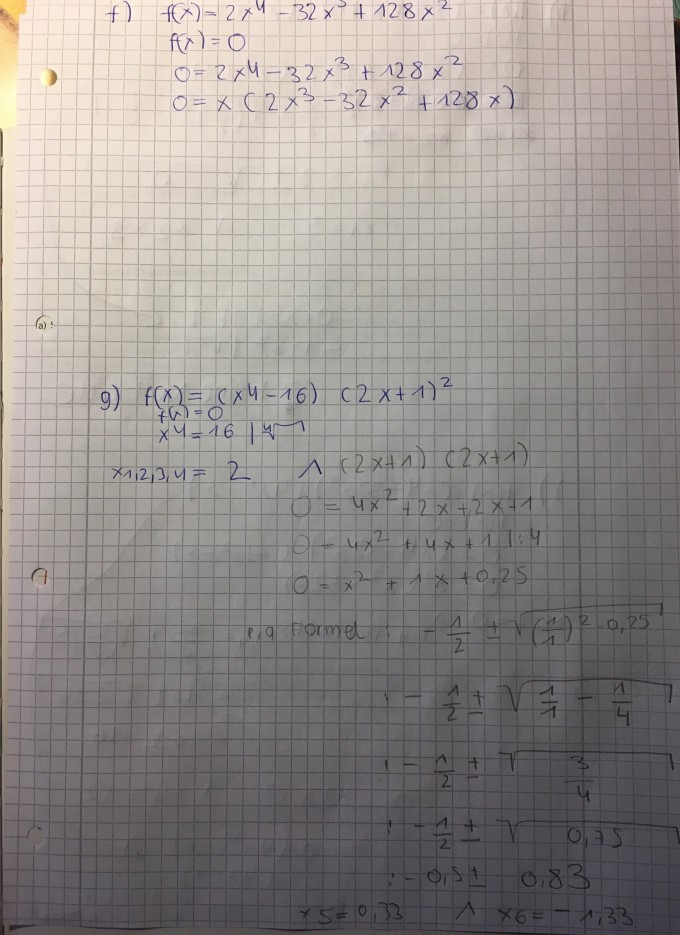 f) f(x) = 2x⁴ - 32x³ + 128x²
f(x) = 0
0 = 2x4 - 32x³ + 128x²
0 = x (2x³ - 32x² + 128x)
a):
g) f(x) = (x4 - 16) (2x+1)²
f(x) = 0
x4 = 16 | ∜
x1,2,3,4 = 2 ∧ (2x+1) (2x+1)
0 = 4x² + 2x + 2x + 1
0 = 4x² + 4x + 1 |:4
0 = x² + 1x + 0,25
p,q Formel : - 1/2 ± √((1/1)² - 0,25)
: - 1/2 ± √(1/1 - 1/4)
: - 1/2 ± √(3/4)
: - 1/2 ± √(0,75)
: - 0,5 ± 0,83
x5 = 0,33 ∧ x6 = - 1,33